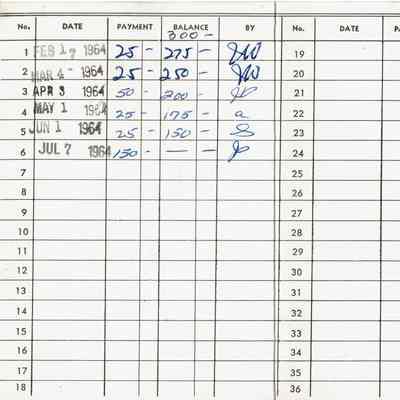 No. DATE PAYMENT BALANCE BY No. DATE PA
300 -
1 FEB 17 1964 25 - 275 - 19
2 MAR 4 - 1964 25 - 250 - 20
3 APR 3 1964 50 - 200 - 21
4 MAY 1 1964 25 - 175 - a 22
5 JUN 1 1964 25 - 150 - 23
6 JUL 7 1964 150 - — — 24
7 25
8 26
9 27
10 28
11 29
12 30
13 31
14 32
15 33
16 34
17 35
18 36